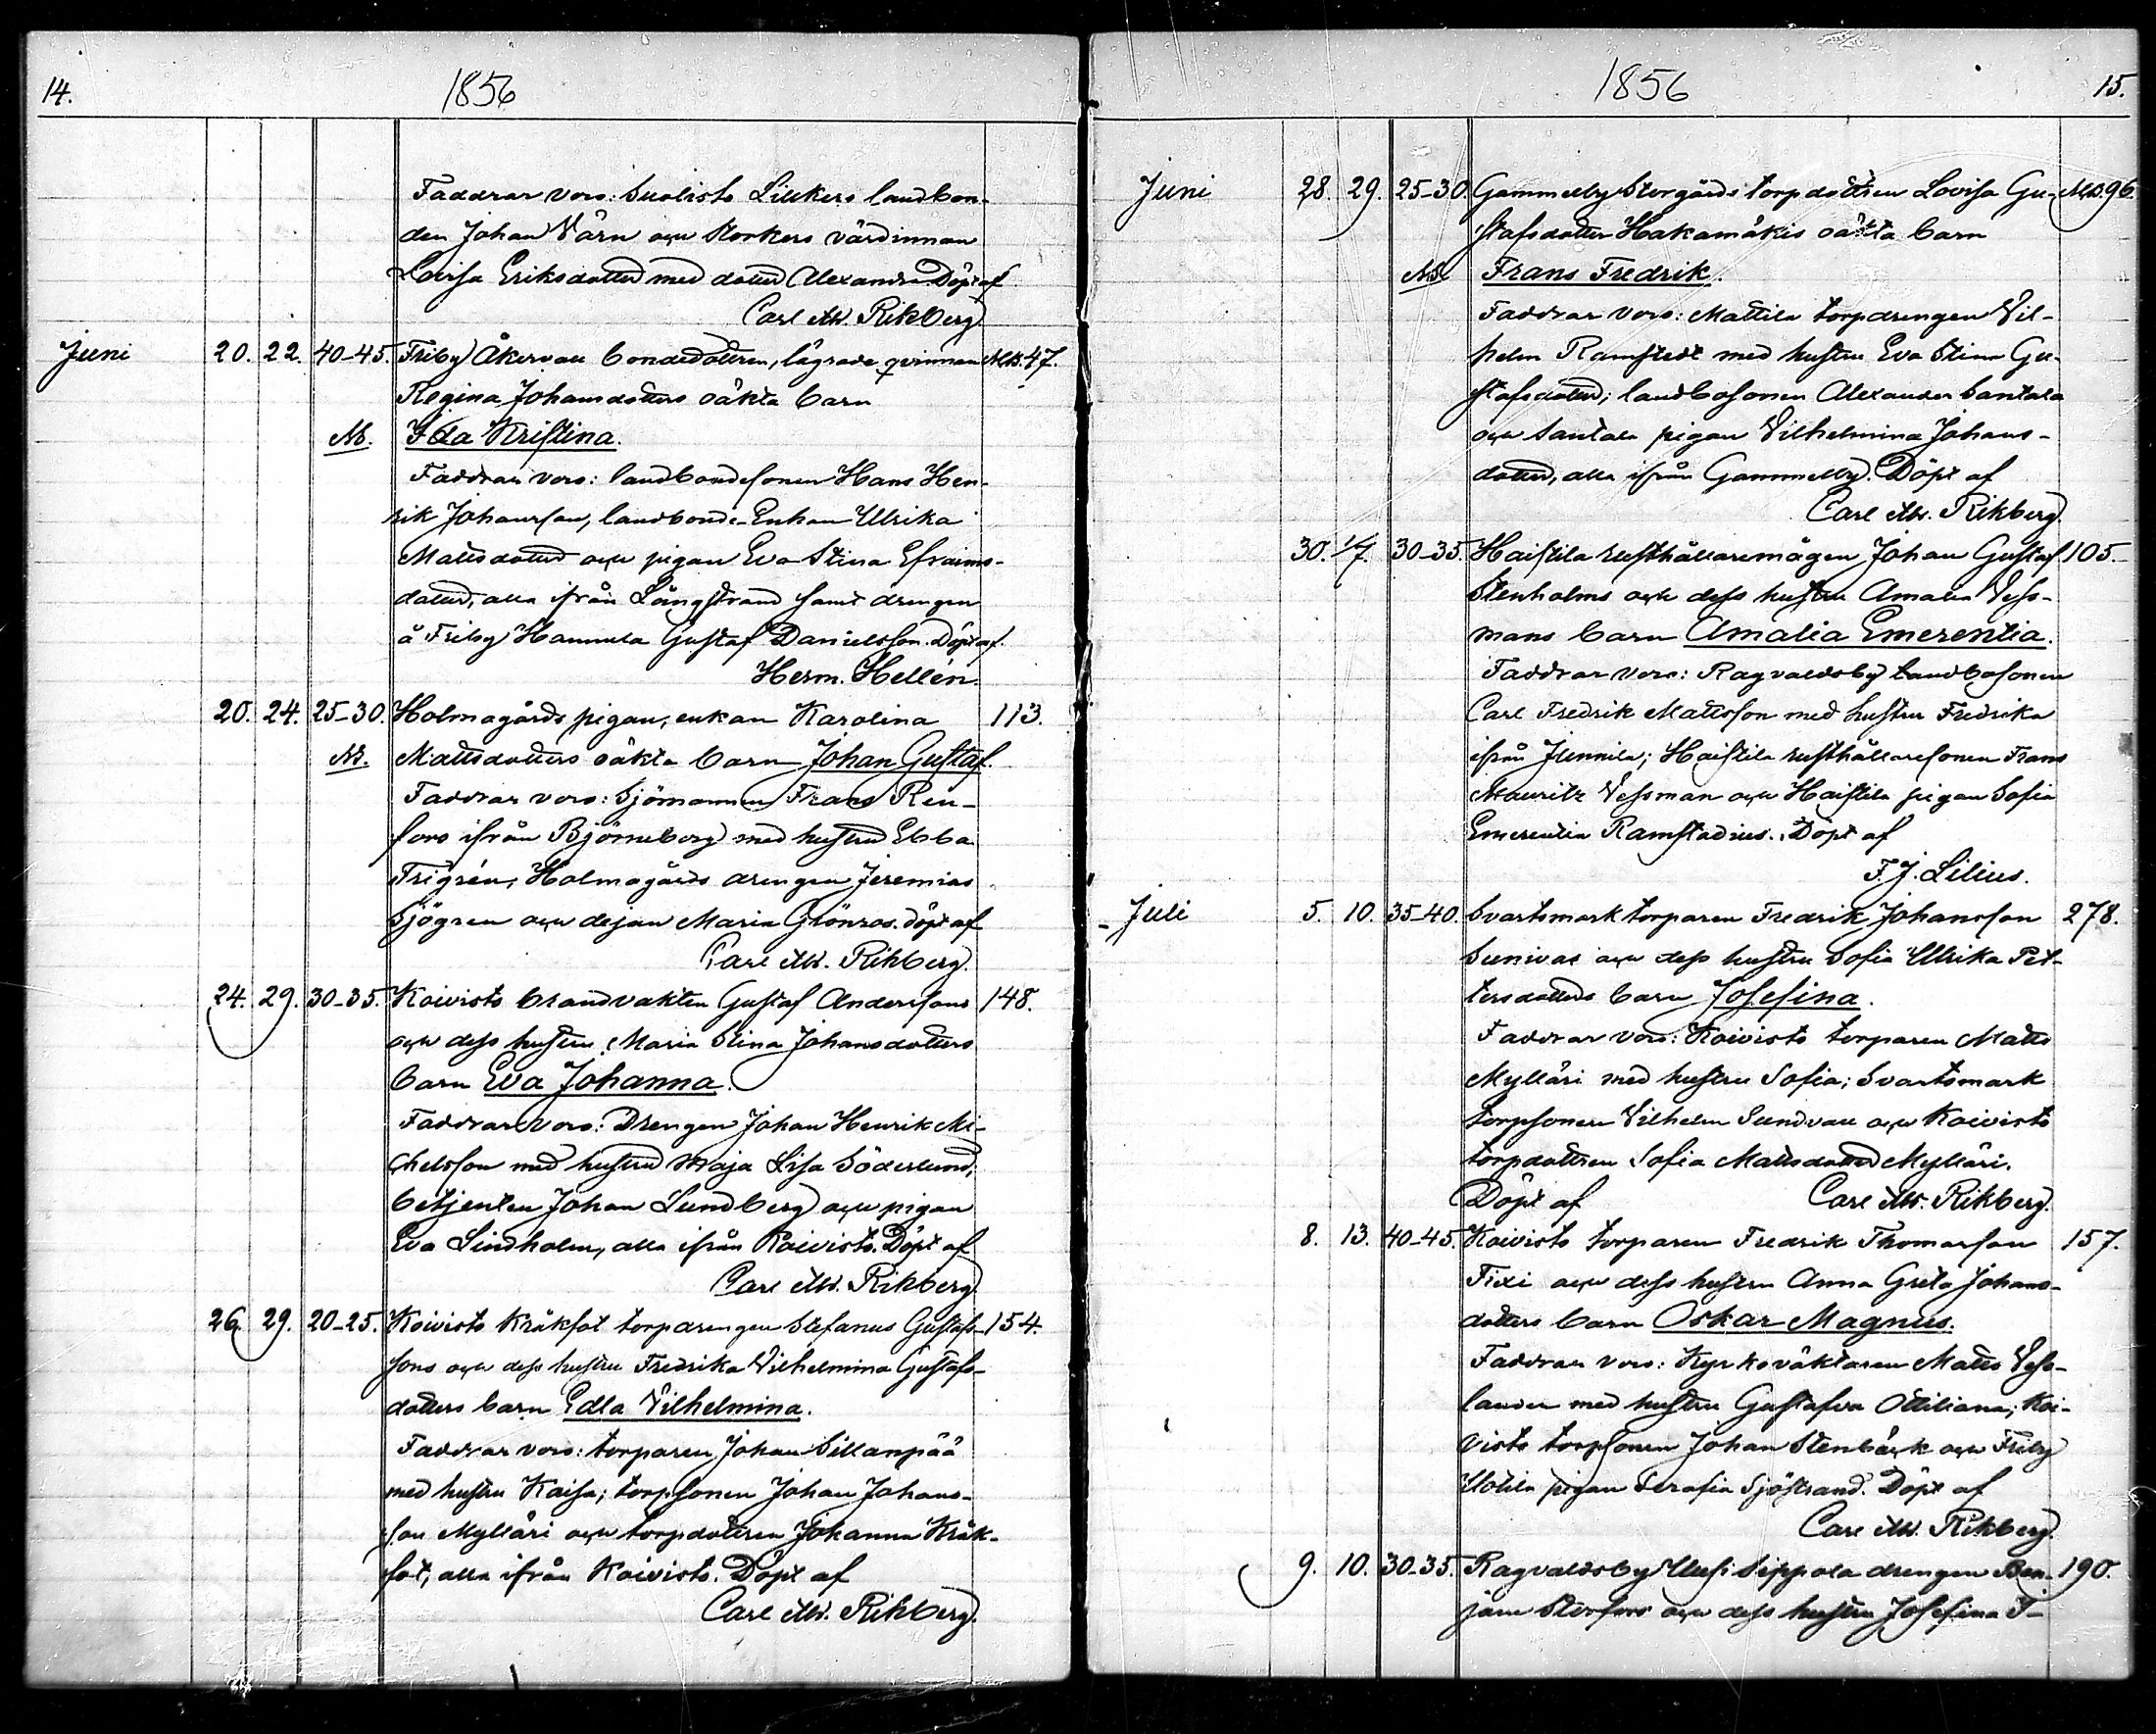 14. 1856
Faddrar voro: Suolisto Liukers landbon-
den Johan Värn och Storkers värdinnan
Lovisa Eriksdotter med dotter Alexandra. Döpt af
Carl M. Rikberg.
Juni 20. 22. 40-45. Friby Åkervall bondedottren, lägrade qvinnan 47.
Regina Johansdotters oäkta barn
NB. Ida Kristina.
Faddrar voro: landbondesonen Hans Hen-
rik Johansson, landbonde-Enkan Ulrika
Mattsdotter och pigan Eva Stina Efraims-
dotter, alla ifrån Långstrand samt drengen
å Friby Hannula Gustaf Danielsson. Döpt af
Herm. Hellén.
20. 24. 25-30. Holmagårds pigan, enkan Karolina 113.
NB. Mattsdotters oäkta barn Johan Gustaf.
Faddrar voro: Sjömannen Frans Ren-
fors ifrån Björneborg med hustru Ebba
Frigrén, Holmagårds drengen Jeremias
Sjögren och dejan Maria Grönros. Döpt af
Carl M. Rikberg.
24. 29. 30-35. Koivisto brandvakten Gustaf Anderssons 148.
och dess hustru Maria Stina Johansdotters
barn Eva Johanna.
Faddrar voro: Drengen Johan Henrik Mi-
chelsson med hustru Maja Lisa Söderlund,
betjenten Johan Lundberg och pigan
Eva Lindholm, alla ifrån Koivisto. Döpt af
Carl M. Rikberg.
26. 29. 20-25. Koivisto Kråkfot torpdrengen Stefanus Gustafs- 154.
sons och dess hustru Fredrika Vilhelmina Gustafs-
dotters barn Edla Vilhelmina.
Faddrar voro: torparen Johan Sillanpää
med hustru Kaisa; torpsonen Johan Johans-
son Mylläri och torpdottren Johanna Kråk-
fot, alla ifrån Koivisto. Döpt af
Carl M. Rikberg.
1856 15.
Juni 28. 29. 25-30. Gammelby Storgårds torpdottren Lovisa Gu- 96.
stafsdotter Hakamäkis oäkta barn
NB. Frans Fredrik.
Faddrar voro: Mattila torpdrengen Vil-
helm Ramstedt med hustru Eva Stina Gu-
stafsdotter; landbosonen Alexander Santala
och Santala pigan Vilhelmina Johans-
dotter, alla ifrån Gammelby. Döpt af
Carl M. Rikberg.
30. 1/7. 30-35. Haistila rusthållaremågen Johan Gustaf 105.
Stenholms och dess hustru Amalia Vess-
mans barn Amalia Emerentia.
Faddrar voro: Ragvaldsby landbosonen
Carl Fredrik Mattsson med hustru Fredrika
ifrån Junnila; Haistila rusthållaresonen Frans
Mauritz Vessman och Haistila pigan Sofia
Emerentia Ramstadius. Döpt af
F. J. Lilius.
Juli 5. 10. 35-40. Svartsmark torparen Fredrik Johansson 278.
Sunivas och dess hustru Sofia Ulrika Pet-
tersdotters barn Josefina.
Faddrar voro: Koivisto torparen Matts
Mylläri med hustru Sofia; Svartsmark
torpsonen Vilhelm Sundvall och Koivisto
torpdottren Sofia Mattsdotter Mylläri.
Döpt af Carl M. Rikberg.
8. 13. 40-45. Koivisto torparen Fredrik Thomasson 157.
Fixi och dess hustru Anna Greta Johans-
dotters barn Oskar Magnus.
Faddrar voro: Kyrkoväktaren Matts Vess-
lander med hustru Gustafva Ottiliana; Koi-
visto torpsonen Johan Stenbäck och Friby
Uotila pigan Serafia Sjöstrand. Döpt af
Carl M. Rikberg.
9. 10. 30-35. Ragvaldsby Uusi Sippola drengen Ben- 190.
jam Storfors och dess hustru Josefina T-